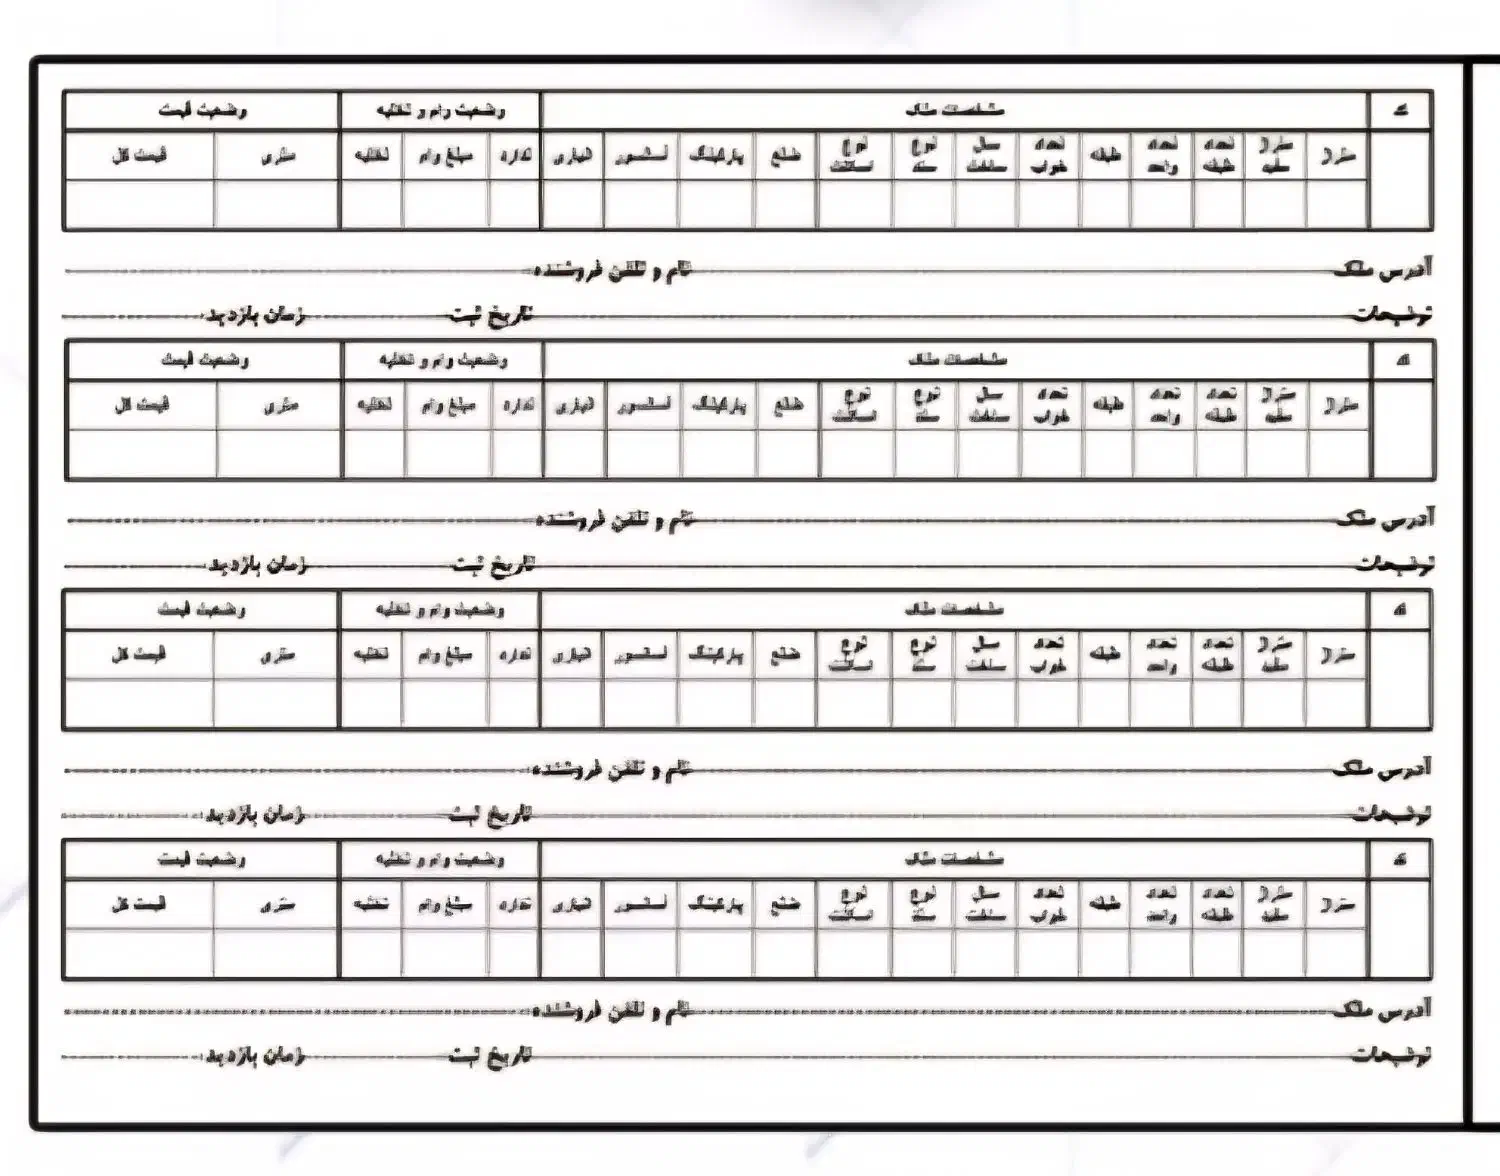 کد مشخصات ملک وضعیت وام و تخلیه وضعیت قیمت
متراژ متراژ تعداد تعداد طبقه تعداد سال نوع نوع ضلع پارکینگ آسانسور انباری اندازه مبلغ وام تخلیه متری قیمت کل
طبقه واحد خواب ساخت سند اسکلت
آدرس ملک نام و تلفن فروشنده
توضیحات تاریخ ثبت زمان بازدید
کد مشخصات ملک وضعیت وام و تخلیه وضعیت قیمت
متراژ متراژ تعداد تعداد طبقه تعداد سال نوع نوع ضلع پارکینگ آسانسور انباری اندازه مبلغ وام تخلیه متری قیمت کل
طبقه واحد خواب ساخت سند اسکلت
آدرس ملک نام و تلفن فروشنده
توضیحات تاریخ ثبت زمان بازدید
کد مشخصات ملک وضعیت وام و تخلیه وضعیت قیمت
متراژ متراژ تعداد تعداد طبقه تعداد سال نوع نوع ضلع پارکینگ آسانسور انباری اندازه مبلغ وام تخلیه متری قیمت کل
طبقه واحد خواب ساخت سند اسکلت
آدرس ملک نام و تلفن فروشنده
توضیحات تاریخ ثبت زمان بازدید
کد مشخصات ملک وضعیت وام و تخلیه وضعیت قیمت
متراژ متراژ تعداد تعداد طبقه تعداد سال نوع نوع ضلع پارکینگ آسانسور انباری اندازه مبلغ وام تخلیه متری قیمت کل
طبقه واحد خواب ساخت سند اسکلت
آدرس ملک نام و تلفن فروشنده
توضیحات تاریخ ثبت زمان بازدید